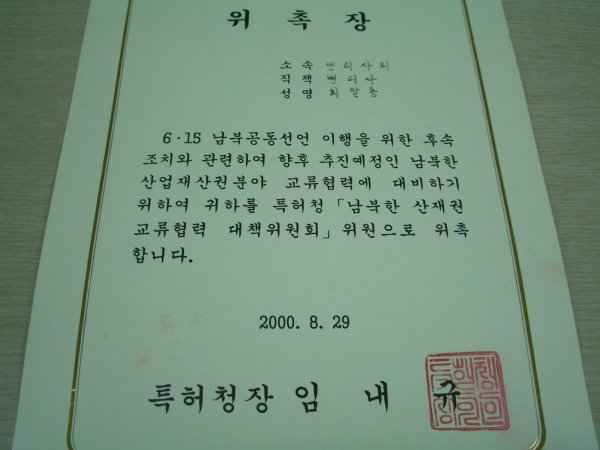 위 촉 장
소 속 변리사회
직 책 변리사
성 명 최달용
6·15 남북공동선언 이행을 위한 후속
조치와 관련하여 향후 추진예정인 남북한
산업재산권분야 교류협력에 대비하기
위하여 귀하를 특허청 「남북한 산재권
교류협력 대책위원회」 위원으로 위촉
합니다.
2000. 8. 29
특허청장 임 내 규